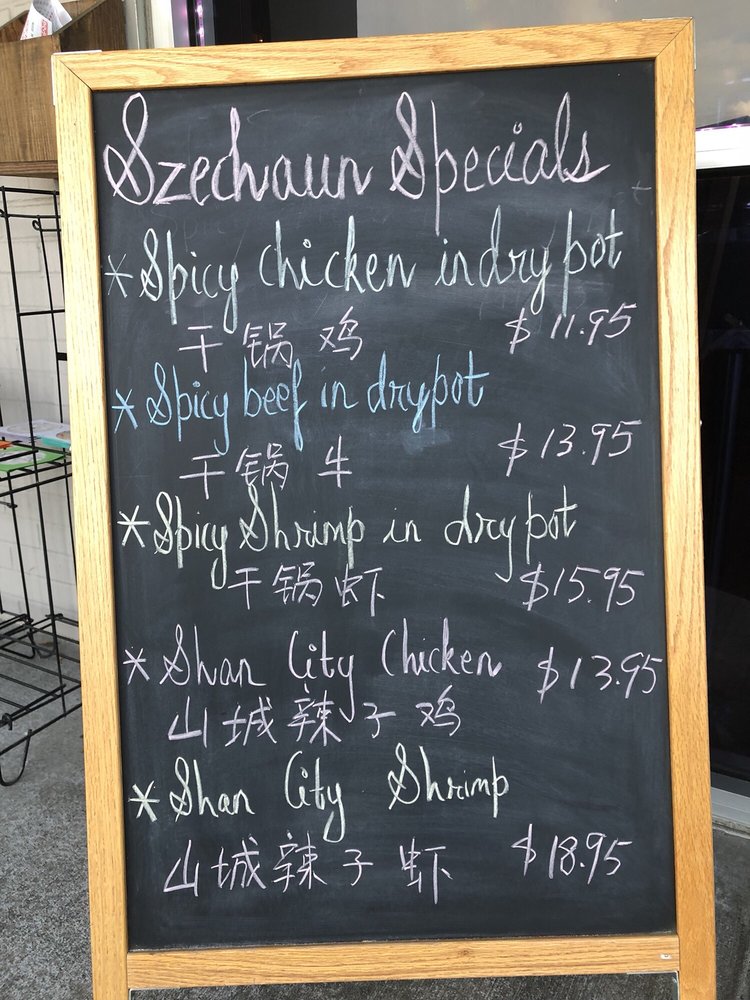 Szechaun Specials
* Spicy chicken in dry pot
干锅鸡 $11.95
* Spicy beef in dry pot
干锅牛 $13.95
* Spicy Shrimp in dry pot
干锅虾 $15.95
* Shan City Chicken $13.95
山城辣子鸡
* Shan City Shrimp
山城辣子虾 $18.95